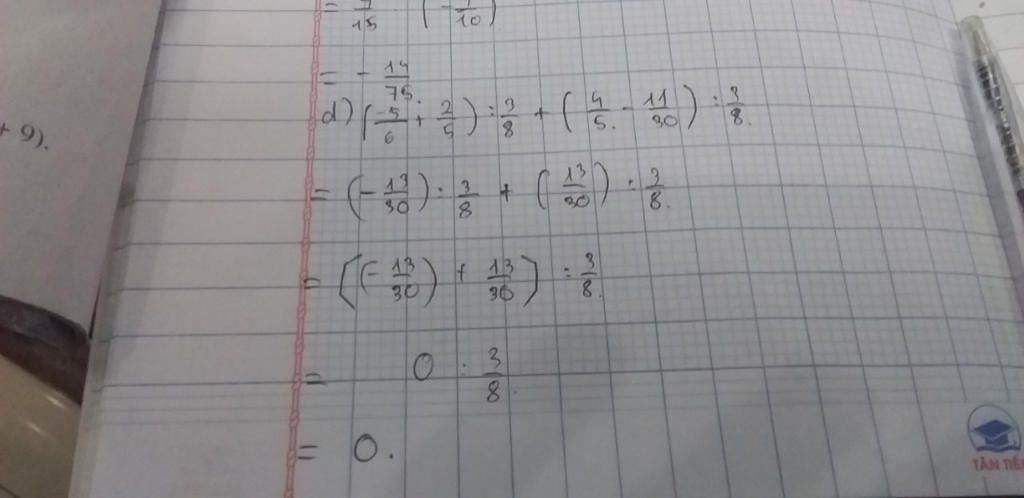 = 7/15 · (-7/10)
= - 14/75.
d) (-5/6 + 2/5) : 3/8 + (4/5. - 11/30) : 3/8.
= (-13/30) : 3/8 + (13/30) : 3/8.
= [(-13/30) + 13/30] : 3/8.
= 0 : 3/8.
= 0.
+ 9).
TÂN TIẾ